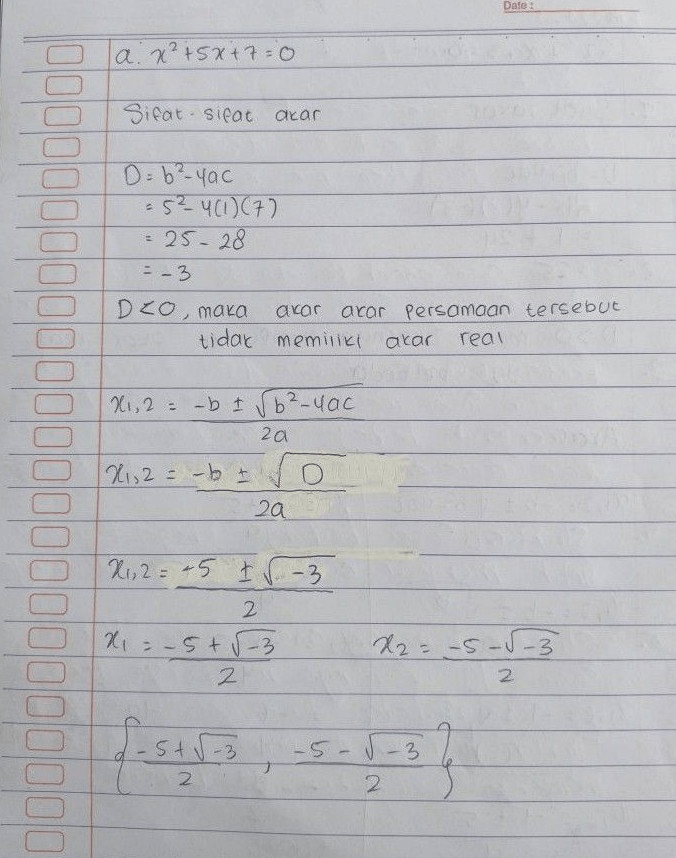 Date:
a. x²+5x+7=0
Sifat-sifat akar
D = b²-4ac
= 5²-4(1)(7)
= 25-28
= -3
D<0, maka akar akar persamaan tersebut
tidak memiliki akar real
x₁,₂ = (-b ± √(b²-4ac))/2a
x₁,₂ = (-b ± √D)/2a
x₁,₂ = (-5 ± √-3)/2
x₁ = (-5+√-3)/2 x₂ = (-5-√-3)/2
{(-5+√-3)/2, (-5-√-3)/2}